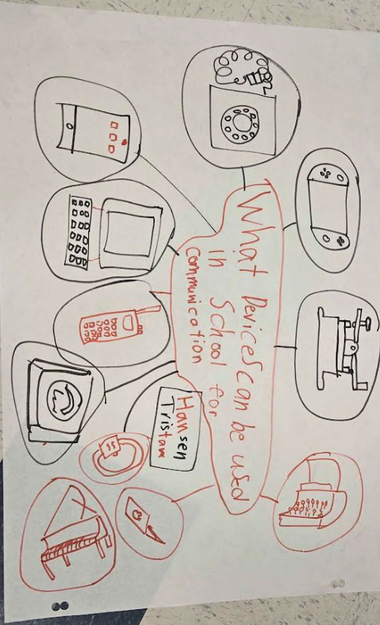 What Devices can be used
in School for
communication
Hansen
Tristam